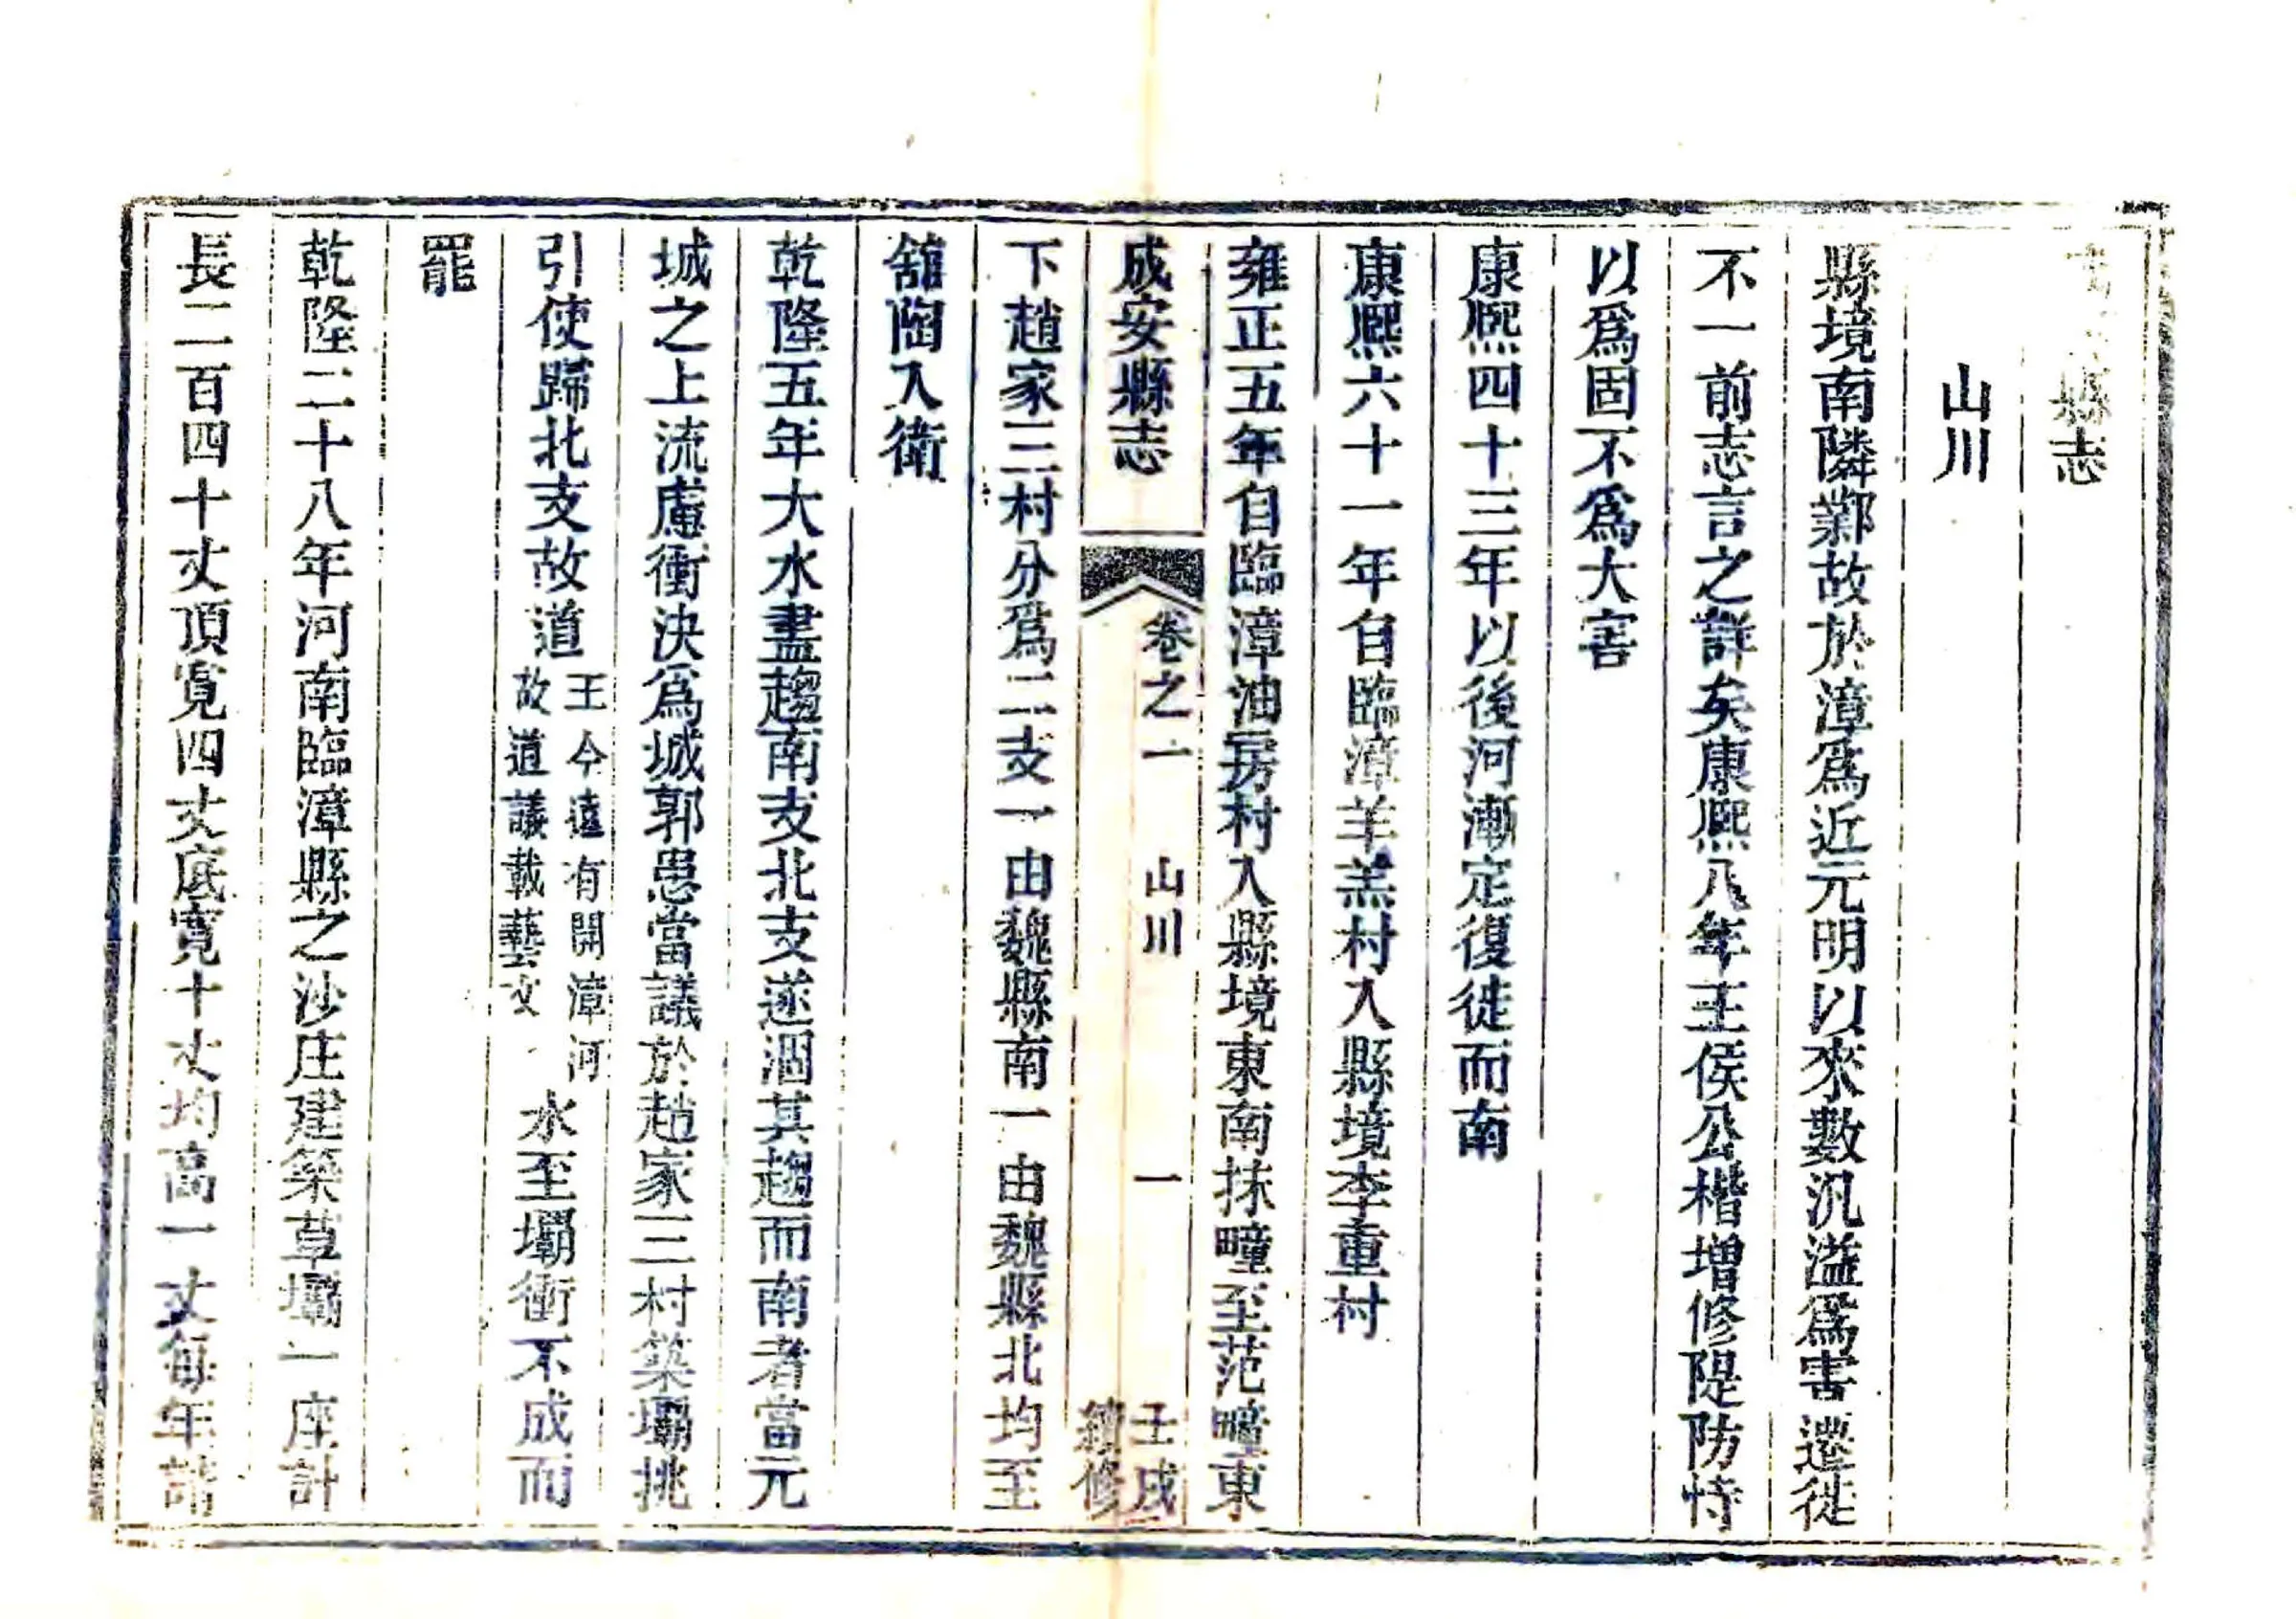 縣志
山川
縣境南隣鄴故於漳爲近元明以來數汎溢爲害遷徙
不一前志言之詳矣康熙八年王侯公楷增修隄防恃
以爲固不爲大害
康熙四十三年以後河漸定復徙而南
康熙六十一年自臨漳羊羔村入縣境李重村
雍正五年自臨漳油房村入縣境東南抹疃至范疃東
成安縣志
卷之一
山川
一
壬戌
續修
下趙家三村分爲二支一由魏縣南一由魏縣北均至
舘陶入衛
乾隆五年大水盡趨南支北支遂涸其趨而南者當元
城之上流慮衝決爲城郭患當議於趙家三村築壩挑
引使歸北支故道
王今遠有開漳河
故道議載藝文
水至壩衝不成而
罷
乾隆二十八年河南臨漳縣之沙庄建築草壩一座計
長二百四十丈頂寛四丈底寛十丈均高一丈每年請